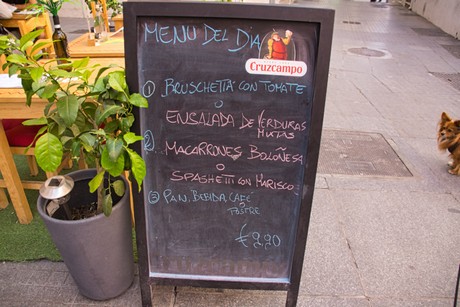 MENU DEL DIA
Cruzcampo
1 BRUSCHETTA CON TOMATE
O
ENSALADA DE VERDURAS
MIXTAS
2 MACARRONES BOLOÑESA
O
SPAGHETTI CON MARISCO
3 PAN, BEBIDA, CAFÉ
O POSTRE
€9,90